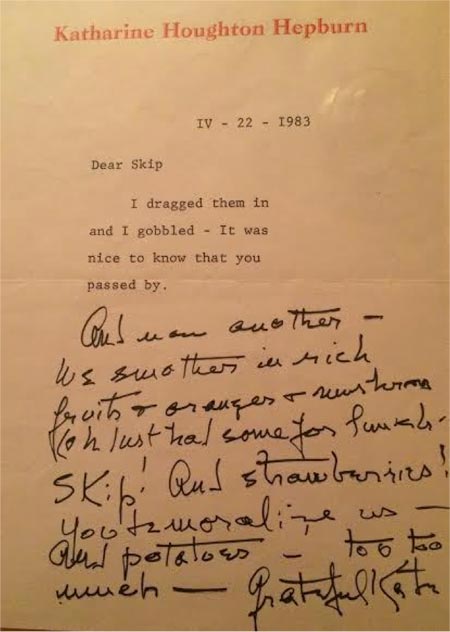 Katharine Houghton Hepburn
IV - 22 - I983
Dear Skip
I dragged them in
and I gobbled - It was
nice to know that you
passed by.
And now another -
We smother in rich
fruits & oranges & mushrooms
just had some for lunch -
Skip! And strawberries!
You demoralize us —
And potatoes - too too
much — Grateful Kate